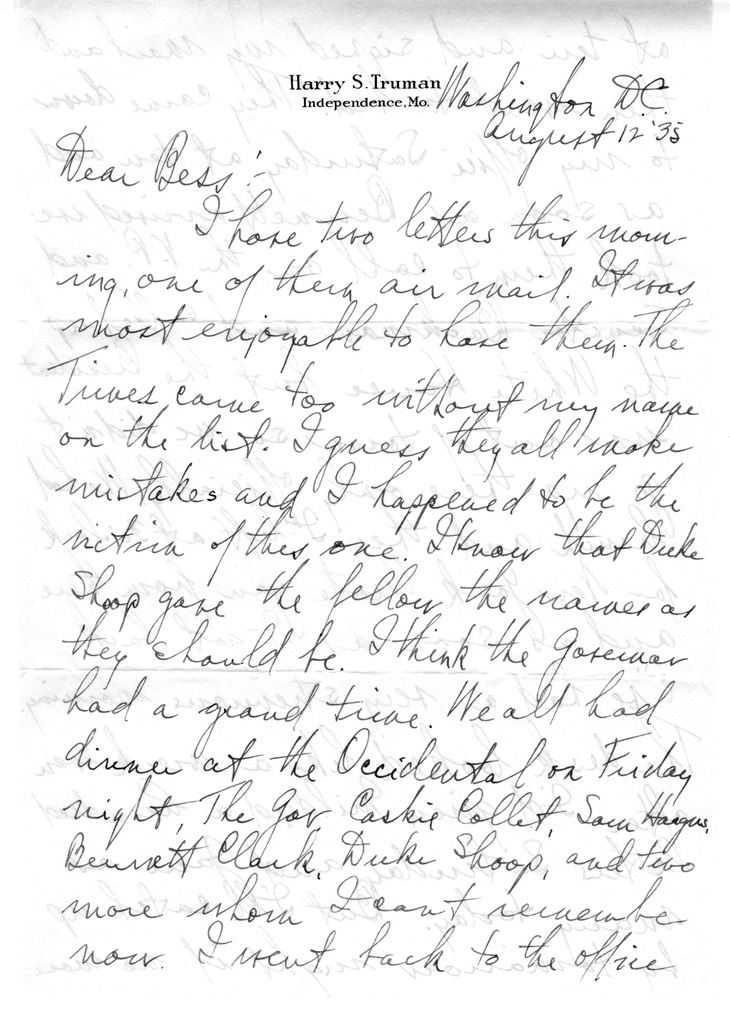 Harry S. Truman
Independence, Mo.
Washington D.C.
August 12 '35
Dear Bess:-
I have two letters this morn-
ing, one of them air mail. It was
most enjoyable to have them. The
Times came too without my name
on the list. I guess they all make
mistakes and I happened to be the
victim of this one. I know that Duke
Shoop gave the fellow the names as
they should be. I think the Governor
had a grand time. We all had
dinner at the Occidental on Friday
night, The Gov Caskie Collet, Sam Hargus,
Bennett Clark, Duke Shoop, and two
more whom I can't remember
now. I went back to the office